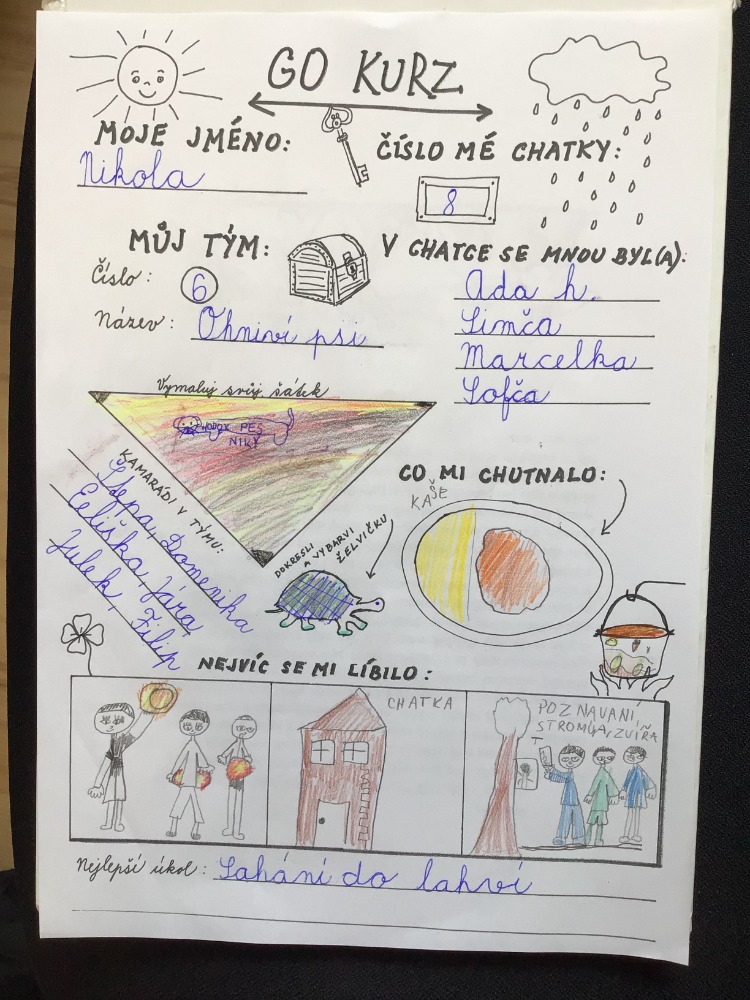 GO KURZ
MOJE JMÉNO:
Nikola
ČÍSLO MÉ CHATKY:
8
MŮJ TÝM:
Číslo: 6
Název: Ohniví psi
V CHATCE SE MNOU BYL(A):
Ada h.
Simča
Marcelka
Sofča
Vymaluj svůj šátek
PES
NIKY
KAMARÁDI V TÝMU:
Štěpa, Domenika
Eeliška, Jára,
Julek, Filip
DOKRESLI
A VYBARVI
ŽELVIČKU
CO MI CHUTNALO:
KAŠE
NEJVÍC SE MI LÍBILO:
CHATKA
POZNAVANÍ
STROMŮA, ZVÍŘA
T
Nejlepší úkol: Sahání do lahví